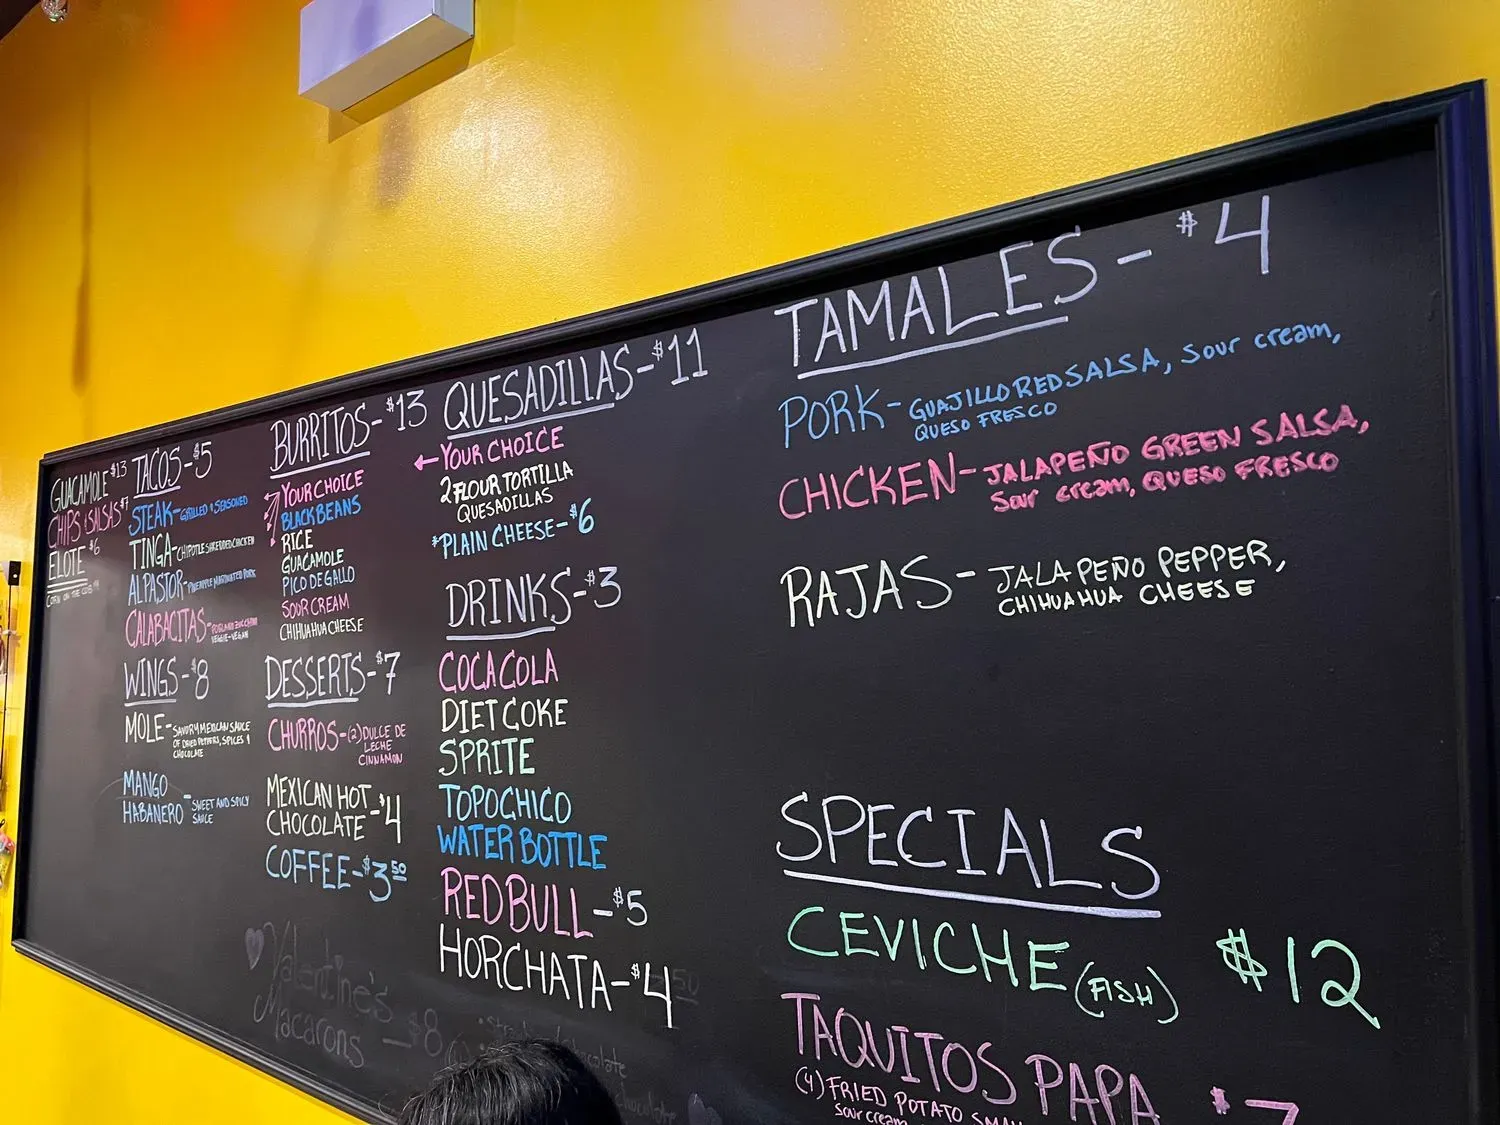 GUACAMOLE $13
CHIPS & SALSAS $7
ELOTE $6
CORN ON THE COB
TACOS-$5
STEAK-GRILLED & SEASONED
TINGA-CHIPOTLE SHREDDED CHICKEN
ALPASTOR-PINEAPPLE MARINATED PORK
CALABACITAS-
ZUCCHINI
VEGGIE-VEGAN
WINGS-$8
MOLE-SAVORY MEXICAN SAUCE
OF DRIED PEPPERS, SPICES &
CHOCOLATE
MANGO
HABANERO-SWEET AND SPICY
SAUCE
BURRITOS-$13
YOUR CHOICE
BLACK BEANS
RICE
GUACAMOLE
PICO DE GALLO
SOUR CREAM
CHIHUAHUA CHEESE
DESSERTS-$7
CHURROS-(2) DULCE DE
LECHE
CINNAMON
MEXICAN HOT
CHOCOLATE-$4
COFFEE-$3 50
Valentine's
Macarons - $8
QUESADILLAS-$11
YOUR CHOICE
2 FLOUR TORTILLA
QUESADILLAS
*PLAIN CHEESE-$6
DRINKS-$3
COCA COLA
DIET COKE
SPRITE
TOPOCHICO
WATER BOTTLE
RED BULL-$5
HORCHATA-$4 50
TAMALES-$4
PORK-GUAJILLO RED SALSA, Sour cream,
QUESO FRESCO
CHICKEN-JALAPEÑO GREEN SALSA,
Sour cream, QUESO FRESCO
RAJAS-JALAPEÑO PEPPER,
CHIHUAHUA CHEESE
SPECIALS
CEVICHE (FISH) $12
TAQUITOS PAPA $7
(4) FRIED POTATO
Sour cream